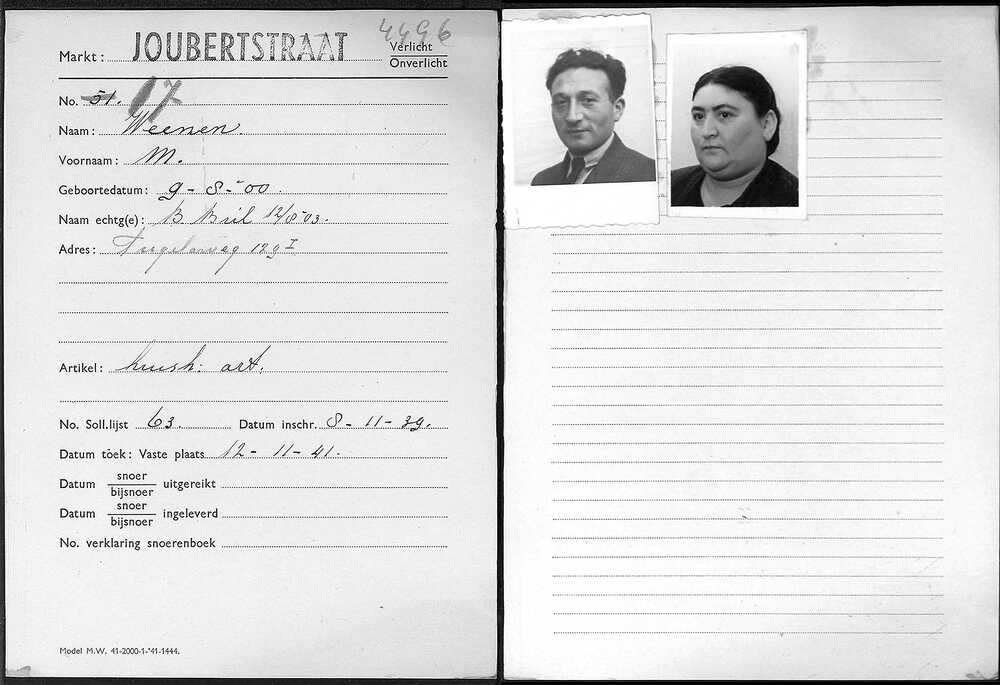 4496
Markt: JOUBERTSTRAAT Verlicht
Onverlicht
No. 51. 17
Naam: Weenen.
Voornaam: M.
Geboortedatum: 9-8-'00.
Naam echtg(e): B Bril 12/8-03.
Adres: Tugelaweg 129 I
Artikel: huish: art.
No. Soll.lijst 63. Datum inschr. 8-11-39.
Datum toek: Vaste plaats 12-11-41.
Datum snoer
bijsnoer uitgereikt
Datum snoer
bijsnoer ingeleverd
No. verklaring snoerenboek
Model M.W. 41-2000-1-'41-1444.